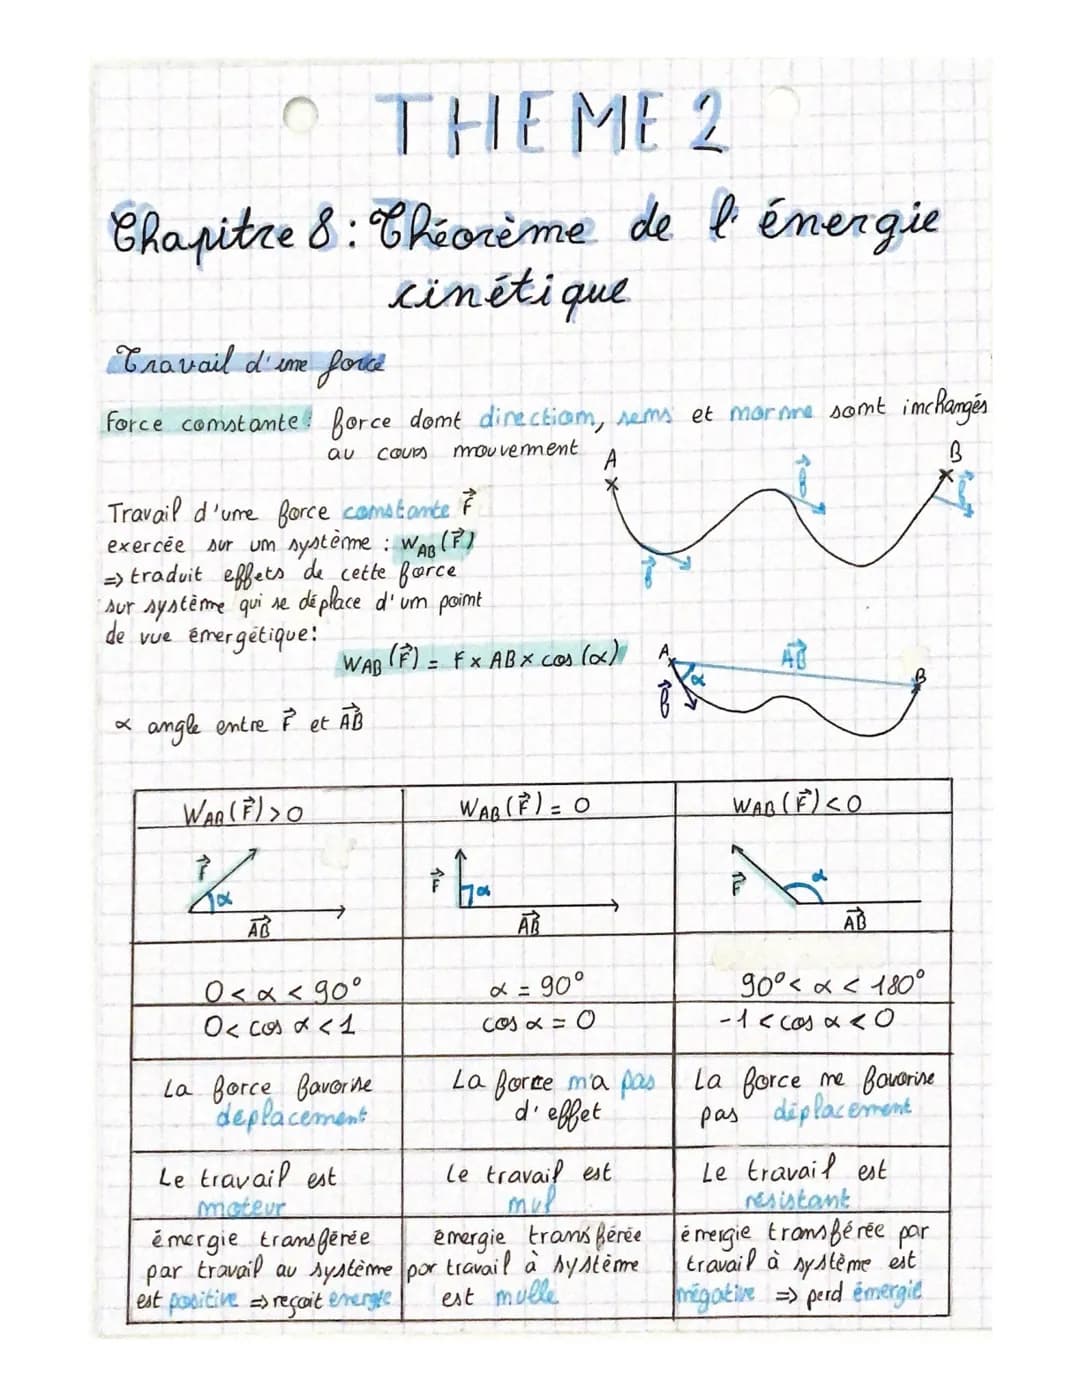 THEME 2
Chapitre 8 : Théorème de l'énergie
cinétique
Travail d'une force
Force constante : force dont direction, sens et norme sont inchangés
au cours mouvement
A
B
F⃗
F⃗
F⃗
Travail d'une force constante F⃗
exercée sur un système : W_AB (F⃗)
=> traduit effets de cette force
sur système qui se déplace d'un point
de vue énergétique :
W_AB (F⃗) = F x AB x cos (α)
A
AB⃗
B
α
F⃗
α angle entre F⃗ et AB⃗
W_AB (F⃗) > 0
W_AB (F⃗) = 0
W_AB (F⃗) < 0
F⃗
α
AB⃗
F⃗
α
AB⃗
F⃗
α
AB⃗
0 < α < 90°
α = 90°
90° < α < 180°
0 < cos α < 1
cos α = 0
-1 < cos α < 0
La force favorise
déplacement
La force n'a pas
d'effet
La force ne favorise
pas déplacement
Le travail est
moteur
Le travail est
nul
Le travail est
résistant
énergie transférée
par travail au système
est positive => reçoit énergie
énergie transférée
par travail à système
est nulle
énergie transférée par
travail à système est
négative => perd énergie